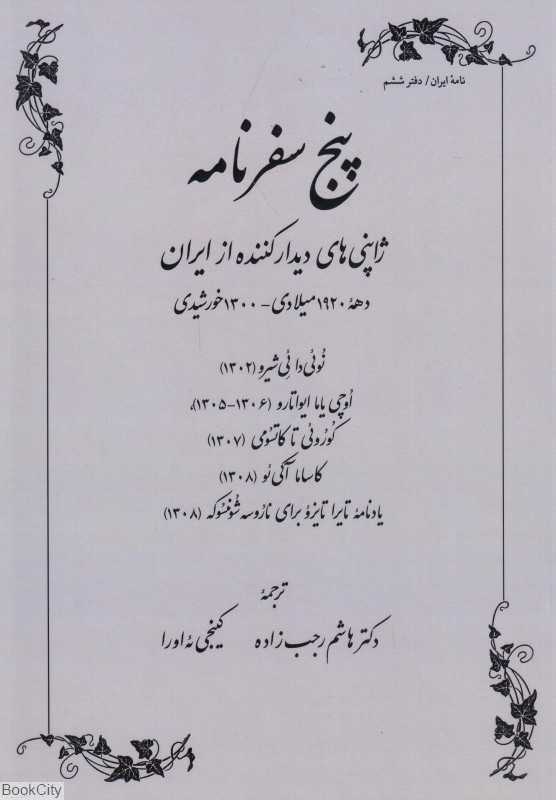 نامهٔ ایران / دفتر ششم
پنج سفرنامه
ژاپنی‌های دیدارکننده از ایران
دههٔ ۱۹۲۰ میلادی - ۱۳۰۰ خورشیدی
نُوئی دائی شیرو (۱۳۰۲)
اُوچی یاما ایواتارو (۱۳۰۶-۱۳۰۵)،
کُورُوئی تاکاتسُومی (۱۳۰۷)
کاساما آکی ئو (۱۳۰۸)
یادنامهٔ تایرا تایزو برای نارُوسه شُونسُوکه (۱۳۰۸)
ترجمهٔ
دکتر هاشم رجب زاده کینجی ئه اورا
BookCity